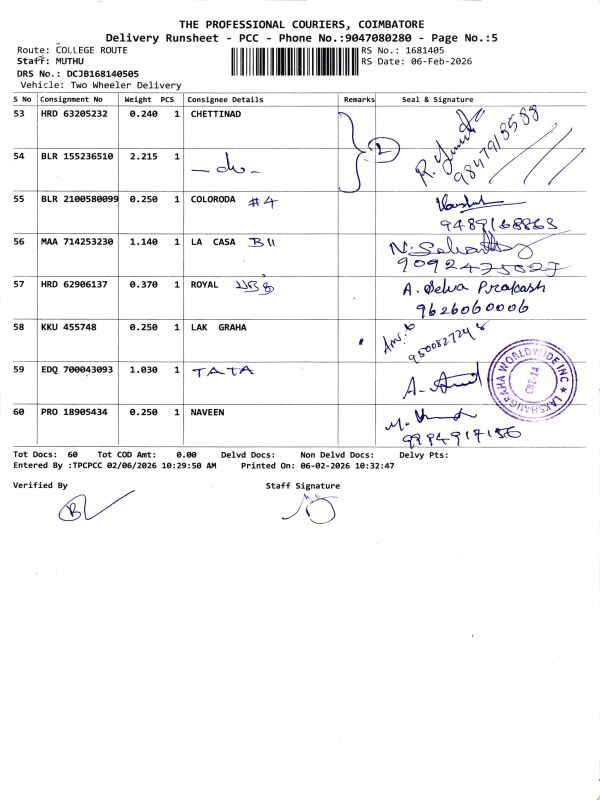 THE PROFESSIONAL COURIERS, COIMBATORE
Delivery Runsheet - PCC - Phone No.:9047080280 - Page No.:5
Route: COLLEGE ROUTE
RS No.: 1681405
Staff: MUTHU
RS Date: 06-Feb-2026
DRS No.: DCJB168140505
Vehicle: Two Wheeler Delivery
S No Consignment No Weight PCS Consignee Details Remarks Seal & Signature
53 HRD 63205232 0.240 1 CHETTINAD
9847913588
54 BLR 155236510 2.215 1 -do-
2
55 BLR 2100580099 0.250 1 COLORODA #4
9489168863
56 MAA 714253230 1.140 1 LA CASA B11
9092475027
57 HRD 62906137 0.370 1 ROYAL
A. Selva Prakash
9626060006
58 KKU 455748 0.250 1 LAK GRAHA
9500827248
59 EDQ 700043093 1.030 1 TATA
LAKSHMIGRAHA WORLDWIDE INC
CBE-14
60 PRO 18905434 0.250 1 NAVEEN
9994917156
Tot Docs: 60 Tot COD Amt: 0.00 Delvd Docs: Non Delvd Docs: Delvy Pts:
Entered By :TPCPCC 02/06/2026 10:29:50 AM Printed On: 06-02-2026 10:32:47
Verified By Staff Signature